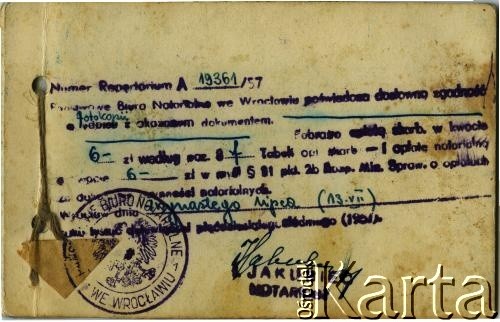 Numer Repertorium A 19361/57
Państwowe Biuro Notarialne we Wrocławiu poświadcza dosłowną zgodność
fotokopii
z okazanym dokumentem.
Pobrano opłatę skarb. w kwocie
6- zł według poz. 8 Tabeli opł skarb — i opłatę notarialną
w kwocie 6- zł w myśl § 21 pkt. 2b Rozp. Min. Spraw. o opłatach
za notarialnych.
Wrocław dnia trzynastego lipca (13-VII)
tysiąc dziewięćset pięćdziesiątego siódmego (1957).
BIURO NOTARIALNE
WE WROCŁAWIU
NOTARIUSZ
Ośrodek
Karta